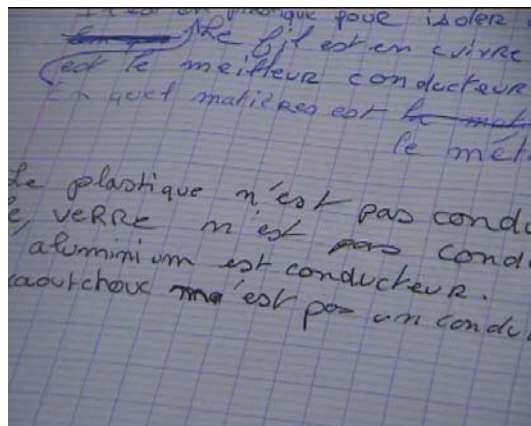 plastique pour isoler
Le fil est en cuivre
est le meilleur conducteur
En quel matières est
le mét
Le plastique n'est pas condu
verre n'est pas cond
aluminium est conducteur.
caoutchouc n'est pas un condu